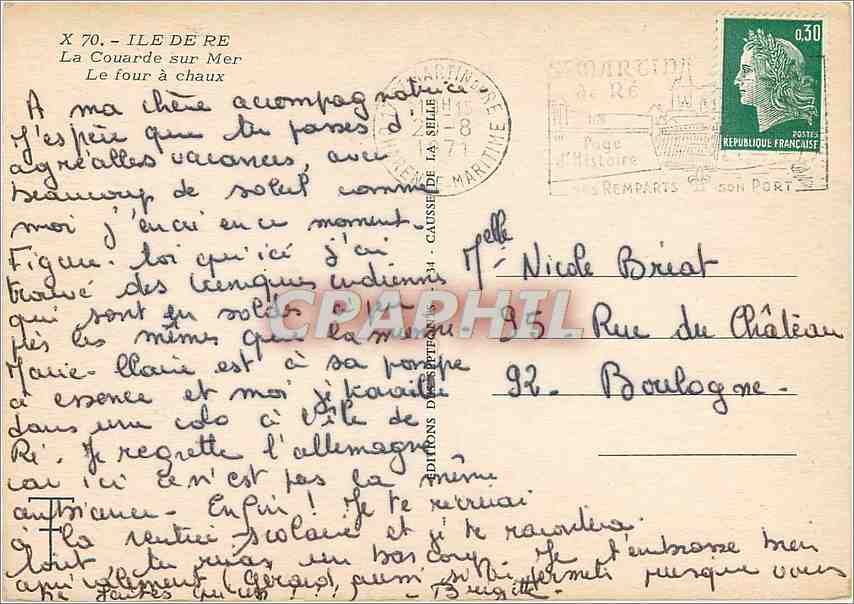 X 70. - ILE DE RE
La Couarde sur Mer
Le four à chaux
A ma chère accompagnatrice
J'espère que tu passes d'
agréables vacances, avec
beaucoup de soleil comme
moi j'en ai en ce moment.
Figure-toi qu'ici j'ai
trouvé des tuniques indiennes
qui sont en soldes à peu
près les mêmes que la mienne.
Marie-Claire est à sa pompe
à essence et moi je travaille
dans une colo à l'île de
Ré. Je regrette l'allemagne
car ici ce n'est pas la même
ambiance. Enfin! Je te reverrai
à la rentrée scolaire et je te raconterai
tout, tu riras un bon coup. Je t'embrasse bien
amicalement (Gérard aussi s'il permet puisque vous
ne faites qu'un!!!) - Brigitte.
EDITIONS DU 34 - CAUSSE DE LA SELLE
ST MARTIN DE RE
15H15
2 -8
1971
CHARENTE-MARITIME
ST MARTIN
de RÉ
Page
d'Histoire
SES REMPARTS SON PORT
0,30
POSTES
REPUBLIQUE FRANÇAISE
Melle Nicole Briat
95. Rue du Château
92. Boulogne.
CPAPHIL